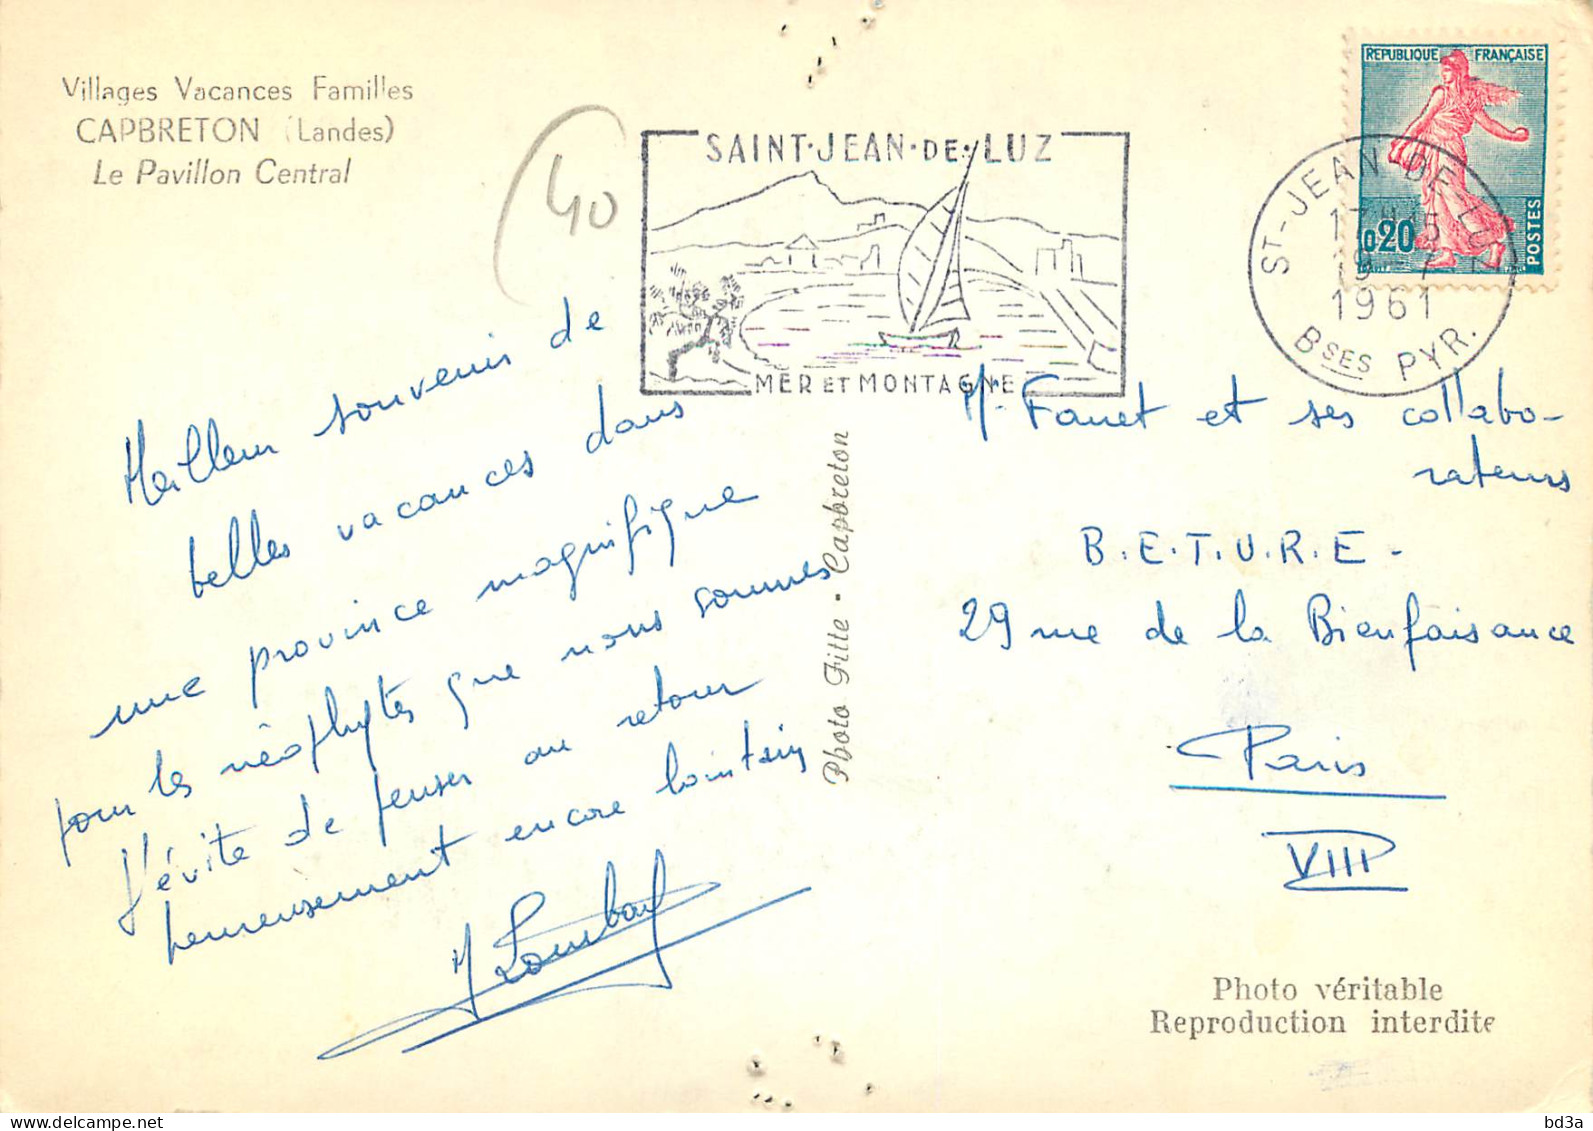 Villages Vacances Familles
CAPBRETON (Landes)
Le Pavillon Central
40
SAINT·JEAN·DE·LUZ
MER ET MONTAGNE
REPUBLIQUE FRANÇAISE
0,20
POSTES
ST-JEAN-DE-LUZ
17H15
19-7
1961
BSES PYR.
Meilleur souvenir de
belles vacances dans
une province magnifique
pour les néophytes que nous sommes
J'évite de penser au retour
heureusement encore lointain
M Lombard
Photo Fitte - Capbreton
Mr Fauet et ses collabo-
rateurs
B.E.T.U.R.E-
29 rue de la Bienfaisance
Paris
VIII
Photo véritable
Reproduction interdite
bd3a